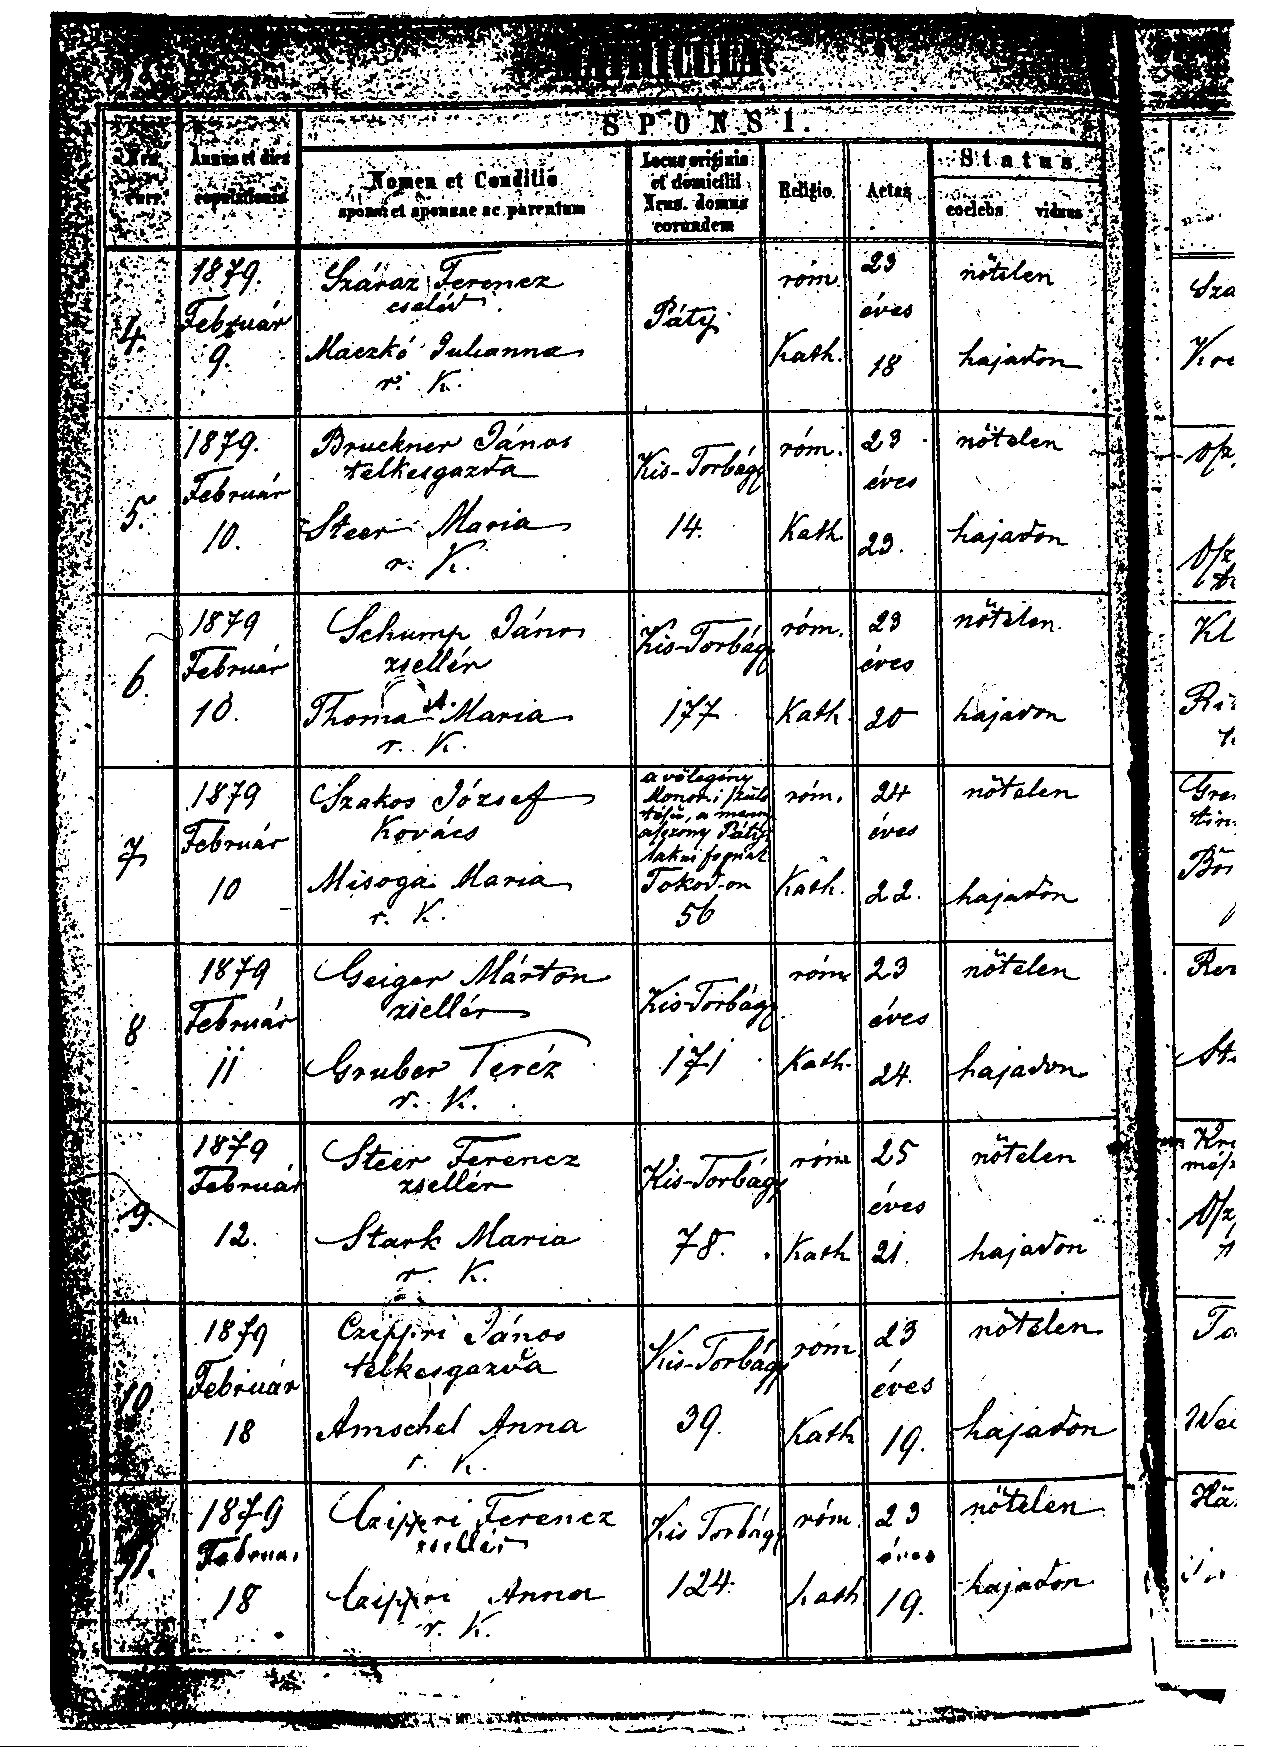 MATRICULA
SPONSI.
Nrus curr.
Annus et dies copulationis
Nomen et Conditio
sponsi et sponsae ac parentum
Locus originis
et domicilii
Nrus. domus
eorundem
Religio.
Aetas
Status
coelebs viduus
4.
1879.
Február
9.
Száraz Ferencz
cseléd
Maczkó Julianna
r. K.
Páty
róm.
Kath.
23
éves
18
nőtelen
hajadon
5.
1879.
Február
10.
Bruckner János
telkesgazda
Steer Maria
r. K.
Kis-Torbágy
14.
róm.
Kath.
23
éves
23.
nőtelen
hajadon
6.
1879
Február
10.
Schump János
zsellér
Thoma A. Maria
r. K.
Kis-Torbágy
177
róm.
Kath
23
éves
20
nőtelen
hajadon
7
1879
Február
10
Szakos József
Kovács
Misoga Maria
r. K.
a vőlegény
Monori szüle
tésű, a meny
aszony Páty
lakni fognak
Tokod-on
56
róm.
Kath.
24
éves
22.
nőtelen
hajadon
8
1879
Február
11
Geiger Márton
zsellér
Gruber Teréz
r. K.
Kis-Torbágy
171
róm
Kath.
23
éves
24.
nőtelen
hajadon
9.
1879
Február
12.
Steer Ferencz
zsellér
Stark Maria
r. K.
Kis-Torbágy
78.
róm
Kath
25
éves
21.
nőtelen
hajadon
10.
1879
Február
18
Czippri János
telkesgazda
Amschel Anna
r. K.
Kis-Torbágy
39.
róm
Kath
23
éves
19.
nőtelen
hajadon
11.
1879
Február
18
Czippri Ferencz
zsellér
Czippri Anna
r. K.
Kis Torbágy
124.
róm.
kath
23
éves
19.
nőtelen
hajadon